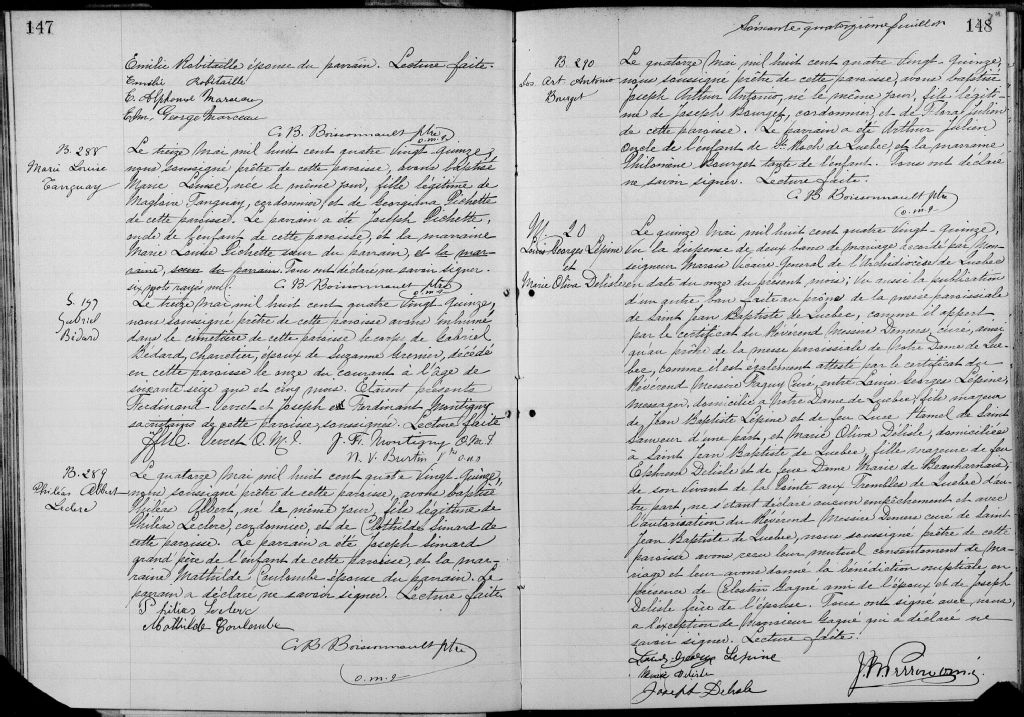 147
Emilie Robitaille épouse du parrain. Lecture faite.
Emilie Robitaille
E. Alphonse Marceau
George Marceau
C. B. Boissonnault ptre
o.m.i.
B. 288
Marie Louise
Tanguay
Le treize Mai mil huit cent quatre vingt-quinze,
nous soussigné prêtre de cette paroisse, avons baptisé
Marie Louise, née le même jour, fille légitime de
Magloire Tanguay, cordonnier, et de Georgiana Pichette
de cette paroisse. Le parrain a été Joseph Pichette,
oncle de l'enfant de cette paroisse, et la marraine
Marie Louise Pichette sœur du parrain, et la mar-
raine, sœur du parrain. Tous ont déclaré ne savoir signer.
six mots rayés nuls. C. B. Boissonnault ptre
o.m.i.
S. 197
Gabriel
Bédard
Le treize Mai mil huit cent quatre vingt-quinze,
nous soussigné prêtre de cette paroisse avons inhumé
dans le cimetière de cette paroisse le corps de Gabriel
Bédard, charretier, époux de Suzanne Grenier, décédé
en cette paroisse le onze du courant à l'âge de
soixante seize ans et cinq mois. Etaient présents
Ferdinand Verret et Joseph et Ferdinant Montigny
sacristains de cette paroisse, soussignés. Lecture faite
Verret O.M.I. J. F. Montigny O.M.I
N. V. Burtin Ptre o.m.i
B. 289
Philias Albert
Leclerc
Le quatorze Mai mil huit cent quatre vingt-quinze,
nous soussigné prêtre de cette paroisse, avons baptisé
Philéas Albert, né le même jour, fils légitime de
Philéas Leclerc, cordonnier, et de Clothilde Simard de
cette paroisse. Le parrain a été Joseph Simard
grand père de l'enfant de cette paroisse, et la mar-
raine Mathilde Coulombe épouse du parrain. Le
parrain a déclaré ne savoir signer. Lecture faite
Philias Leclerc
Mathilde Coulombe
C. B. Boissonnault ptre
o.m.i
Soixante quatorzième feuillet
148
B. 290
Jos. Art. Antonio
Bourget
Le quatorze Mai mil huit cent quatre vingt-quinze,
nous soussigné prêtre de cette paroisse, avons baptisé
Joseph Arthur Antonio, né le même jour, fils légiti-
me de Joseph Bourget, cordonnier, et de Flora Julien
de cette paroisse. Le parrain a été Arthur Julien
oncle de l'enfant de St Roch de Quebec, et la marraine
Philomène Bourget tante de l'enfant. Tous ont déclaré
ne savoir signer. Lecture faite.
C. B. Boissonnault ptre
o.m.i
M. 20
Louis Georges Lépine
et
Marie Oliva Delisle
Le quinze Mai mil huit cent quatre vingt-quinze,
Vu la dispense de deux bans de mariage accordé par Mon-
seigneur Marois Vicaire General de l'Archidiocèse de Quebec
en date du onze du présent mois; Vu aussi la publication
d'un autre ban faite au prône de la messe paroissiale
de Saint Jean Baptiste de Quebec, comme il appert
par le certificat du Révérend Messire Demers, curé, ainsi
qu'au prône de la messe paroissiale de Notre Dame de Que-
bec, comme il est également attesté par le certificat du
Révérend Messire Faguy Curé, entre Louis Georges Lépine,
Messager, domicilié à Notre Dame de Quebec, fils majeur
de Jean Baptiste Lépine et de feu Luce Hamel de Saint
Sauveur d'une part, et Marie Oliva Délisle, domiciliée
à Saint Jean Baptiste de Quebec, fille majeure de feu
Ephrem Delisle et de feue Dame Marie de Beauharnais,
de son vivant de la Pointe aux Trembles de Quebec d'au-
tre part, ne s'étant déclaré aucun empêchement et avec
l'autorisation du Révérend Messire Demers curé de Saint
Jean Baptiste de Quebec, nous soussigné prêtre de cette
paroisse avons reçu leur mutuel consentement de Ma-
riage et leur avons donné la bénédiction nuptiale en
présence de Célestin Gagné ami de l'époux et de Joseph
Delisle frère de l'épouse. Tous ont signé avec nous,
à l'exception de Monsieur Gagné qui a déclaré ne
savoir signer. Lecture faite.
Louis George Lépine
Delisle
Joseph Delisle